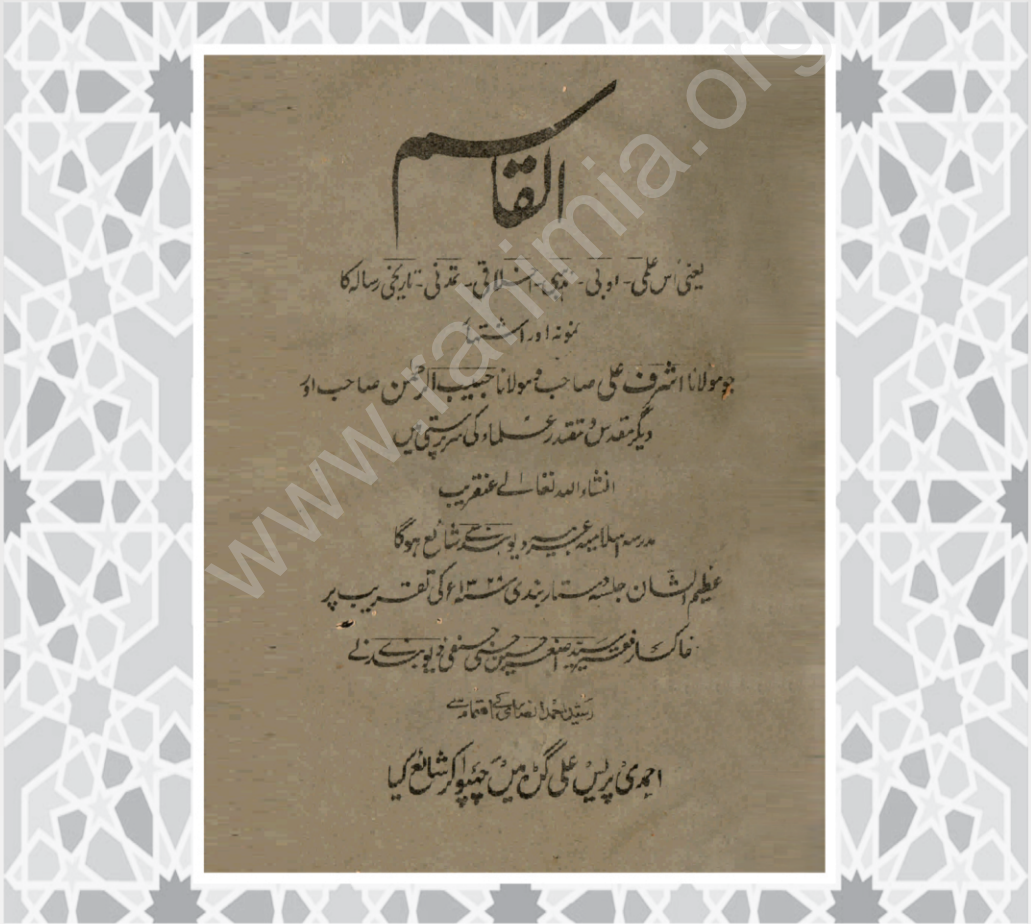 القاسم
یعنی اُس علمی۔ ادبی۔ مذہبی۔ اخلاقی۔ تمدنی۔ تاریخی رسالہ کا
نمونہ اور اشتہار
جو مولانا اشرف علی صاحب و مولانا حبیب الرحمٰن صاحب اور
دیگر مقدس و مقتدر علماء کی سرپرستی میں
انشاء اللہ تعالےٰ عنقریب
مدرسہ اسلامیہ عربیہ دیوبند سے شائع ہوگا
عظیم الشان جلسہ دستار بندی ۱۳۲۸ھ کی تقریب پر
خاکسار فقیر سید اصغر حسین حسنی حنفی دیوبندی نے
رشید احمد انصاری کے اہتمام سے
احمدی پریس علی گڑھ میں چھپوا کر شائع کیا
www.rahimia.org